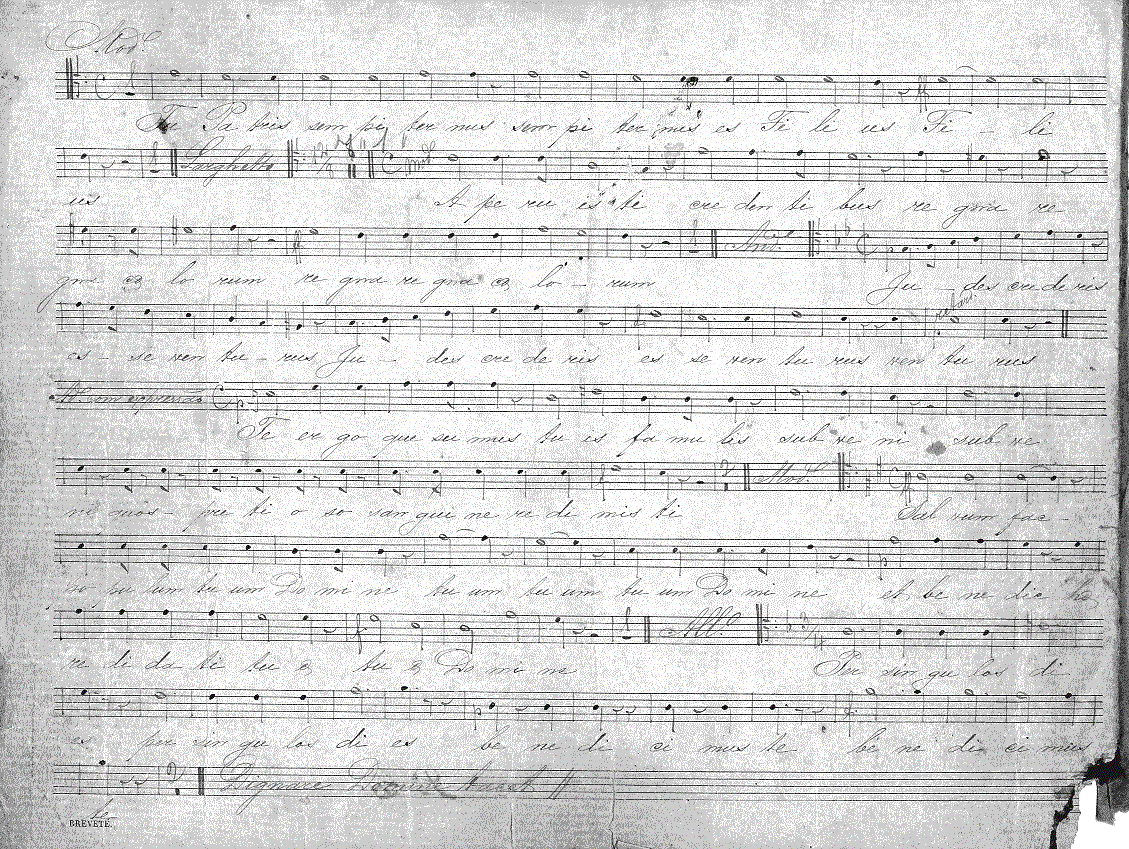 Mod.º
Tu Pa tris sem pi ter nus sem pi ter nus es Fi li us Fi - li
Larghetto
us A pe ru is ti cre den ti bus re gna re
And.e
gna cæ lo rum re gna re gna cæ lo - rum Ju - des cre de ris
es - se ven tu - rus Ju - des cre de ris es se ven tu rus ven tu rus
com expressão
Te er go que su mus tu is fa mu lis sub ve ni sub ve
Mod.º
ni quos - pre ti o so san gui ne re di mis ti Sal vum fac -
po pu lum tu um Do mi ne tu um tu um tu um Do mi ne et be ne dic
All.º
re di da ti tu æ tu æ Do mi ne Per sin gu los di
es per sin gu los di es be ne di ci mus te be ne di ci mus
Dignare Domine tacet
te
BREVETÉ.